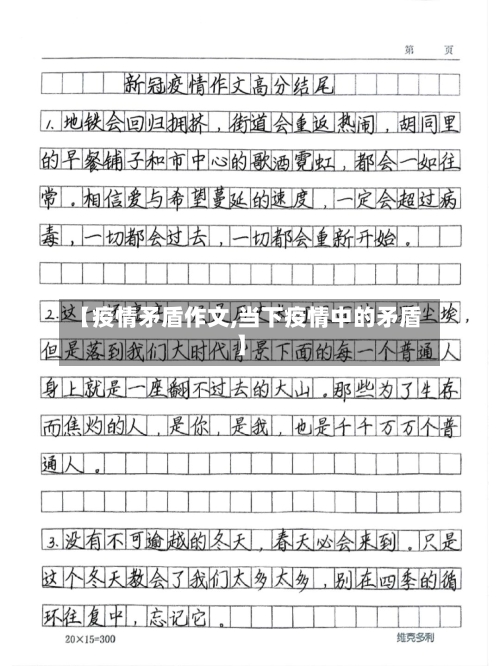 第 页
新冠疫情作文高分结尾
1.地铁会回归拥挤，街道会重返热闹，胡同里
的早餐铺子和市中心的歌酒霓虹，都会一如往
常。相信爱与希望蔓延的速度，一定会超过病
毒，一切都会过去，一切都会重新开始。
2.这
尘埃，
【疫情矛盾作文,当下疫情中的矛盾
】
但是落到我们大时代背景下面的每一个普通人
身上就是一座翻不过去的大山。那些为了生存
而焦灼的人，是你，是我，也是千千万万个普
通人。
3.没有不可逾越的冬天，春天必会来到。只是
这个冬天教会了我们太多太多，别在四季的循
环往复中，忘记它。
20×15=300
维克多利